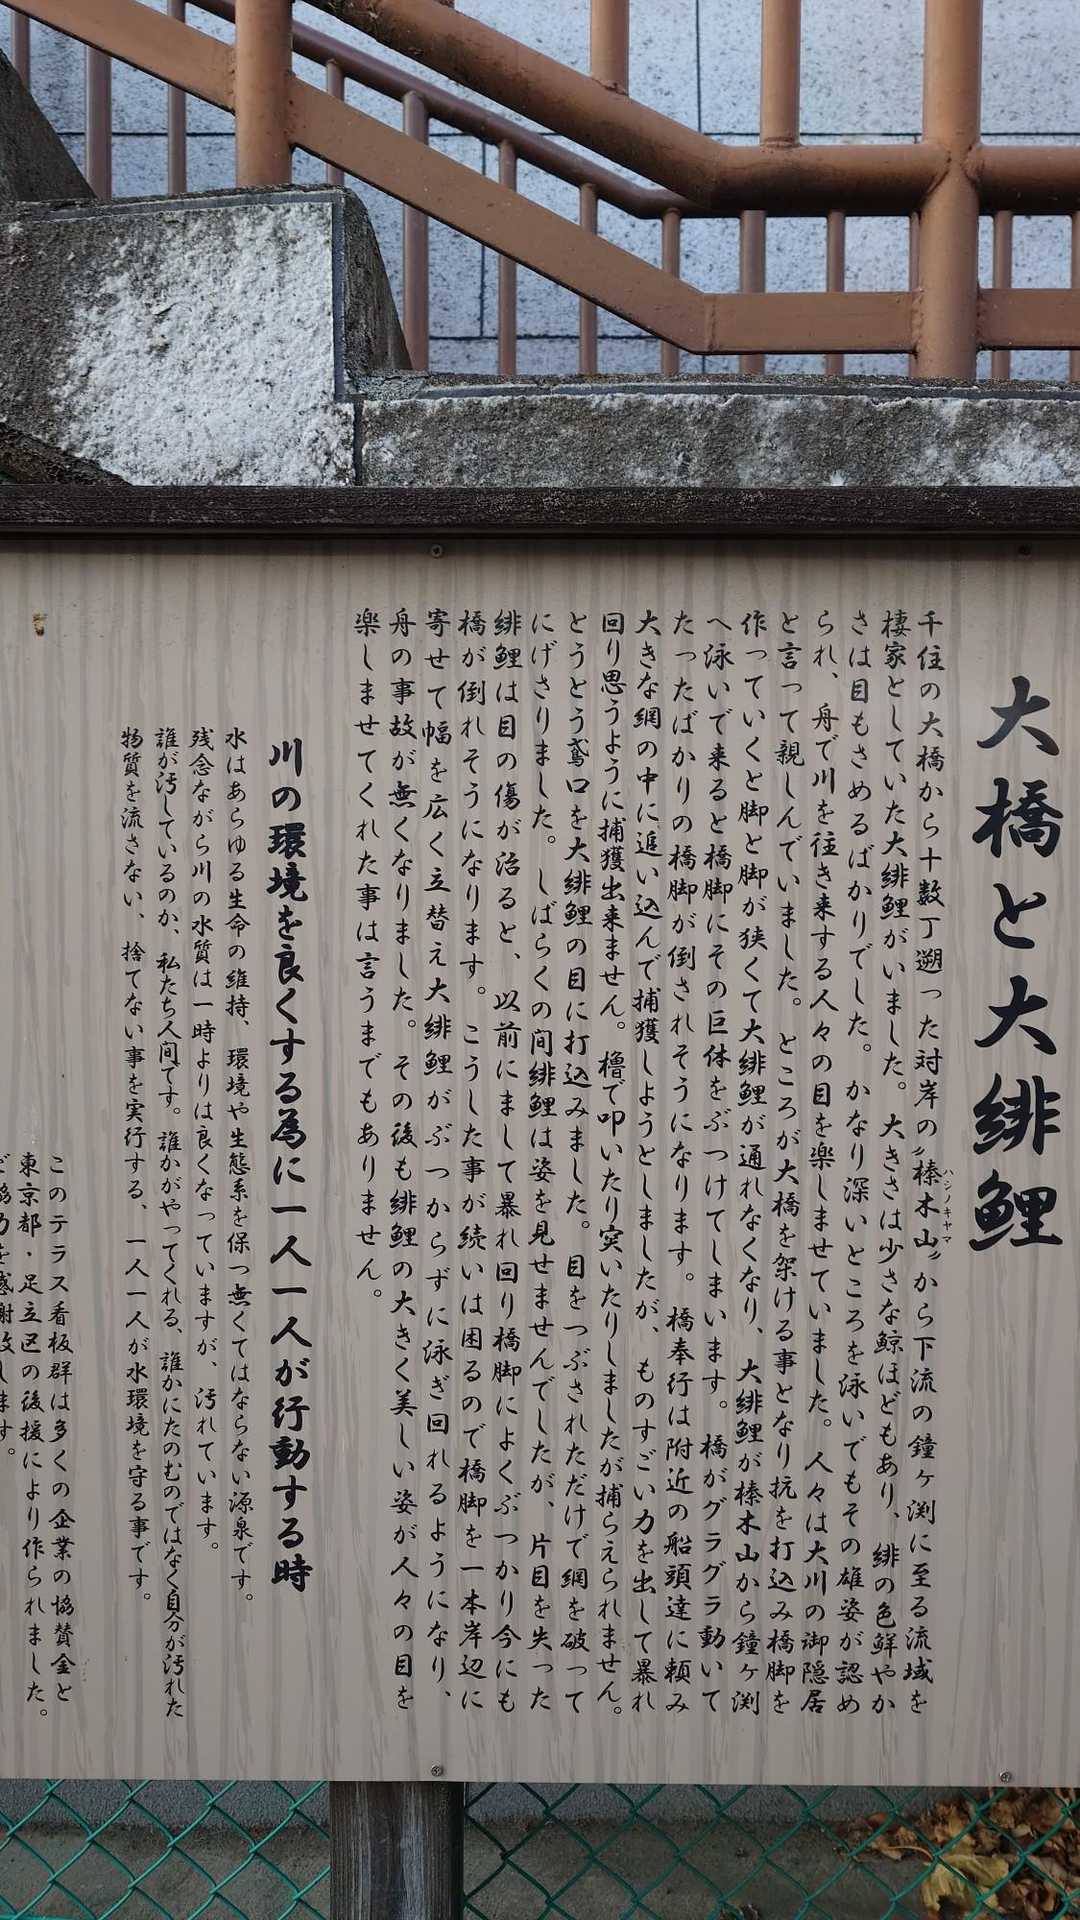 大橋と大緋鯉
千住の大橋から十数丁遡った対岸の〝榛木山〟から下流の鐘ヶ渕に至る流域を
ハシノキヤマ
棲家としていた大緋鯉がいました。大きさは少さな鯨ほどもあり、緋の色鮮やか
さは目もさめるばかりでした。かなり深いところを泳いでもその雄姿が認め
られ、舟で川を往き来する人々の目を楽しませていました。人々は大川の御隠居
と言って親しんでいました。ところが大橋を架ける事となり杭を打込み橋脚を
作っていくと脚と脚が狭くて大緋鯉が通れなくなり、大緋鯉が榛木山から鐘ヶ渕
へ泳いで来ると橋脚にその巨体をぶつけてしまいます。橋がグラグラ動いて
たったばかりの橋脚が倒されそうになります。橋奉行は附近の船頭達に頼み
大きな網の中に追い込んで捕獲しようとしましたが、ものすごい力を出して暴れ
回り思うように捕獲出来ません。櫓で叩いたり突いたりしましたが捕らえられません。
とうとう鳶口を大緋鯉の目に打込みました。目をつぶされただけで網を破って
にげさりました。しばらくの間緋鯉は姿を見せませんでしたが、片目を失った
緋鯉は目の傷が治ると、以前にまして暴れ回り橋脚によくぶつかり今にも
橋が倒れそうになります。こうした事が続いは困るので橋脚を一本岸辺に
寄せて幅を広く立替え大緋鯉がぶつからずに泳ぎ回れるようになり、
舟の事故が無くなりました。その後も緋鯉の大きく美しい姿が人々の目を
楽しませてくれた事は言うまでもありません。
川の環境を良くする為に一人一人が行動する時
水はあらゆる生命の維持、環境や生態系を保つ無くてはならない源泉です。
残念ながら川の水質は一時よりは良くなっていますが、汚れています。
誰が汚しているのか、私たち人間です。誰かがやってくれる、誰かにたのむのではなく自分が汚れた
物質を流さない、捨てない事を実行する、一人一人が水環境を守る事です。
このテラス看板群は多くの企業の協賛金と
東京都・足立区の後援により作られました。